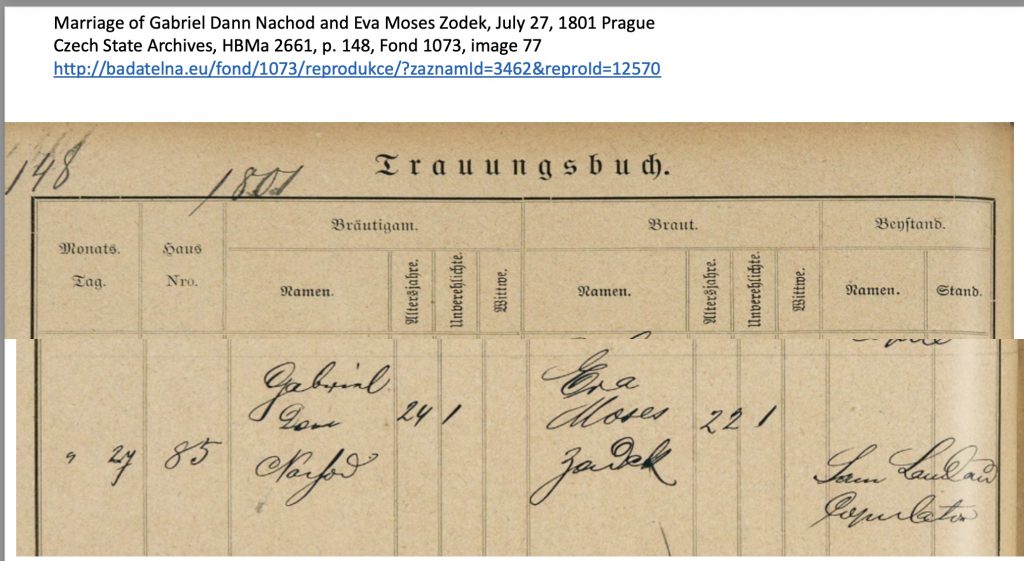 Marriage of Gabriel Dann Nachod and Eva Moses Zodek, July 27, 1801 Prague
Czech State Archives, HBMa 2661, p. 148, Fond 1073, image 77
http://badatelna.eu/fond/1073/reprodukce/?zaznamId=3462&reproId=12570
148
1801
Trauungsbuch.
Monats. Tag.
Haus Nro.
Bräutigam.
Namen.
Altersjahre.
Unverehlichte.
Wittwe.
Braut.
Namen.
Altersjahre.
Unverehlichte.
Wittwe.
Beystand.
Namen.
Stand.
" 27
85
Gabriel
Nachod
24
1
Eva
Moses
Zadek
22
1
Sam Landau